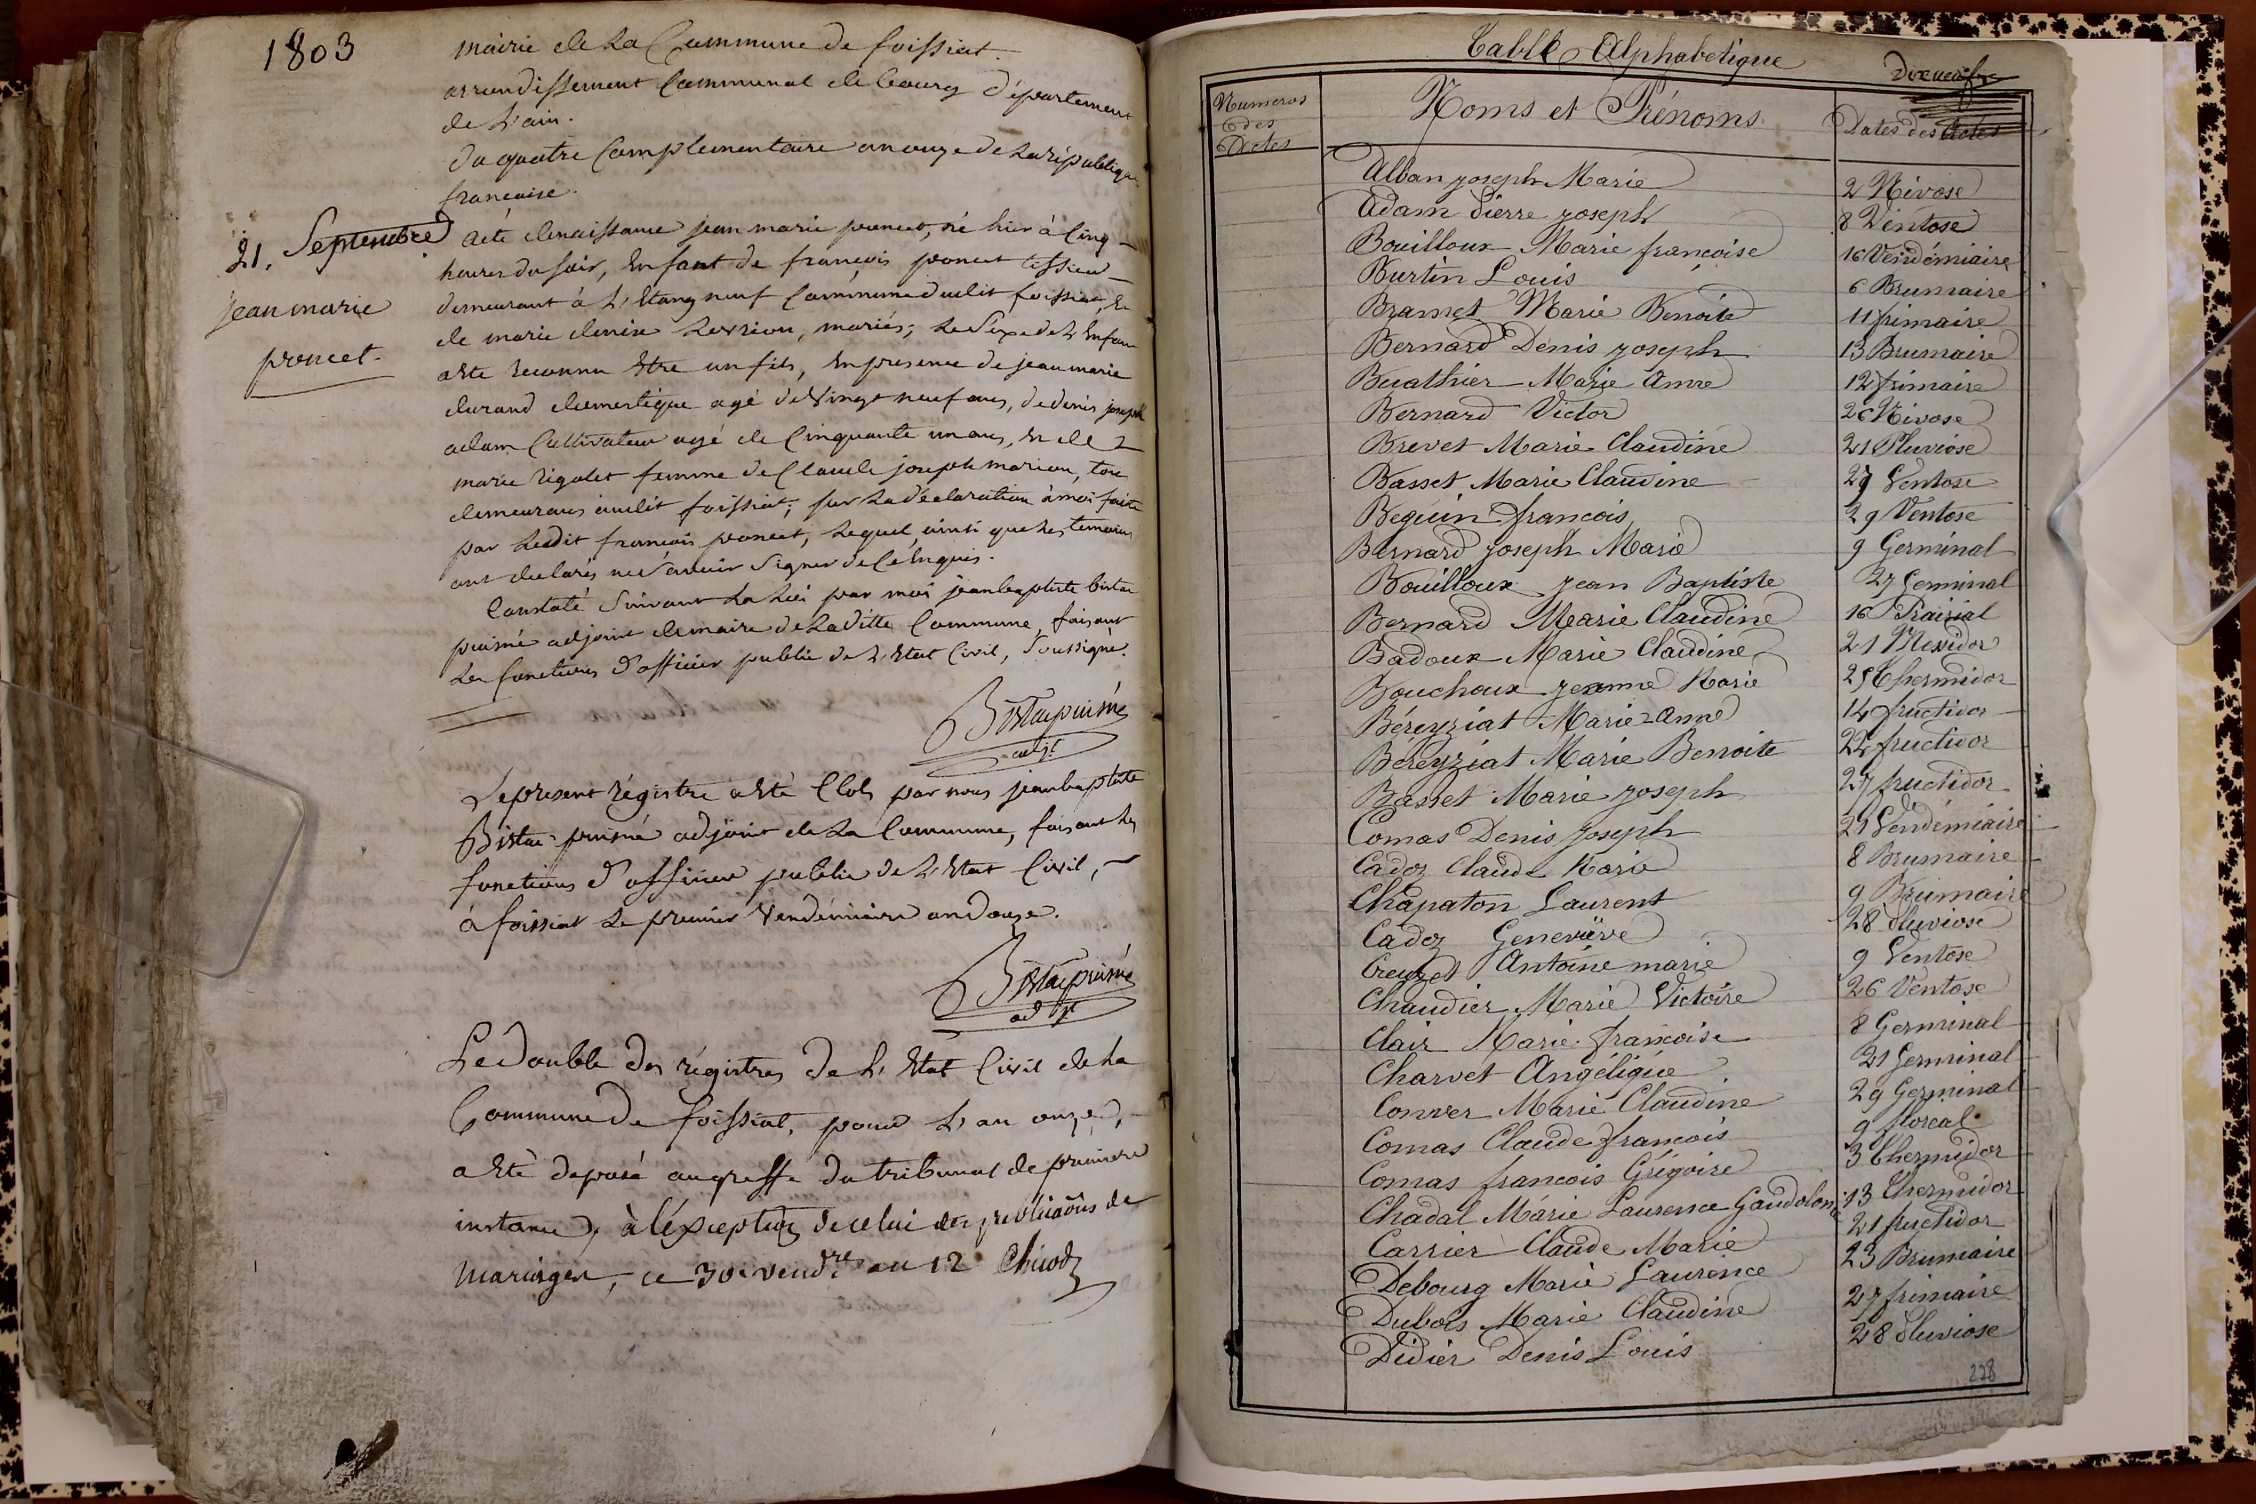 1803
mairie de La Commune de foissiat.
arrondissement Communal de bourg département
de L'ain.
du quatre Complementaire an onze de La république
francaise.
21. Septembre
jean marie
poncet.
acte de naissance jean marie poncet, né hier à Cinq
heures du soir, Enfant de françois poncet tissieur
demeurant à L'Etang neuf Commune dudit foissiat, Et
de marie denise , mariés; Le Sexe de L'Enfant
a Eté reconnu Etre un fils, En presence de jean marie
durand domestique agé de Vingt neuf ans, de denis joseph
adam Cultivateur agé de Cinquante un ans, Et de
marie rigolet femme de Claude joseph marion, tous
demeurans audit foissiat; sur La déclaration à moi faite
par Ledit francois poncet, Lequel ainsi que Les temoins
ont declarés ne Savoir Signer de Ce Enquis.
Constaté Suivant La Loi par moi jean baptiste
puisné adjoint de maire de La ditte Commune, faisant
Les fonctions d'officier public de L'Etat Civil, Soussigné.
puisné
adjt
Le present régistre a Eté Clos par nous jean baptiste
puisné adjoint de La Commune, faisant Les
fonctions d'officier public de L'Etat Civil,
à foissiat Le premier Vendémiaire an douze.
puisné
adjt
Le double des régistres de L'Etat Civil de La
Commune de foissiat, pour L'an onze,
a Eté deposé au greffe du tribunal de premiere
instance, à l'éxception de celui des publicaõns de
mariages, ce 30 vend.re an 12 Chicod
Table Alphabetique
Numeros
des
Actes
Noms et Prénoms
Dates des Actes
Alban joseph Marie 2 Nivose
Adam Pierre joseph 8 Ventose
Bouilloux Marie francoise 16 Vendémiaire
Burtin Louis 6 Brumaire
Bramet Marie Benoite 11 frimaire
Bernard Denis joseph 13 Brumaire
Buathier Marie Anne 12 frimaire
Bernard Victor 26 Nivose
Brevet Marie Claudine 21 Pluviose
Basset Marie Claudine 27 Ventose
Beguin francois 29 Ventose
Bernard joseph Marie 9 Germinal
Bouilloux jean Baptiste 27 Germinal
Bernard Marie Claudine 16 Prairial
Badoux Marie Claudine 21 Messidor
Bouchoux jeanne Marie 25 Thermidor
Béreyziat Marie-Anne 14 fructidor
Béreyziat Marie Benoite 22 fructidor
Basset Marie joseph 27 fructidor
Comas Denis joseph 21 Vendémiaire
Cadoz Claude Marie 8 Brumaire
Chapaton Laurent 9 Brumaire
Cadoz Genevieve 28 Pluviose
Creuzet Antoine marie 9 Ventose
Chaudier Marie Victoire 26 Ventose
Clair Marie francoise 8 Germinal
Charvet Angélique 21 Germinal
Conver Marie Claudine 29 Germinal
Comas Claude francois 9 floreal
Comas francois Grégoire 3 Thermidor
Chadal Marie Laurence Gandolone 13 Thermidor
Carrier Claude Marie 21 fructidor
Debourg Marie Laurence 23 Brumaire
Dubois Marie Claudine 27 frimaire
Didier Denis Louis 28 Pluviose
228